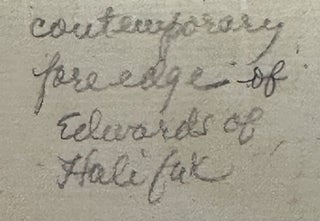 contemporary
fore edge of
Edwards of
Halifax